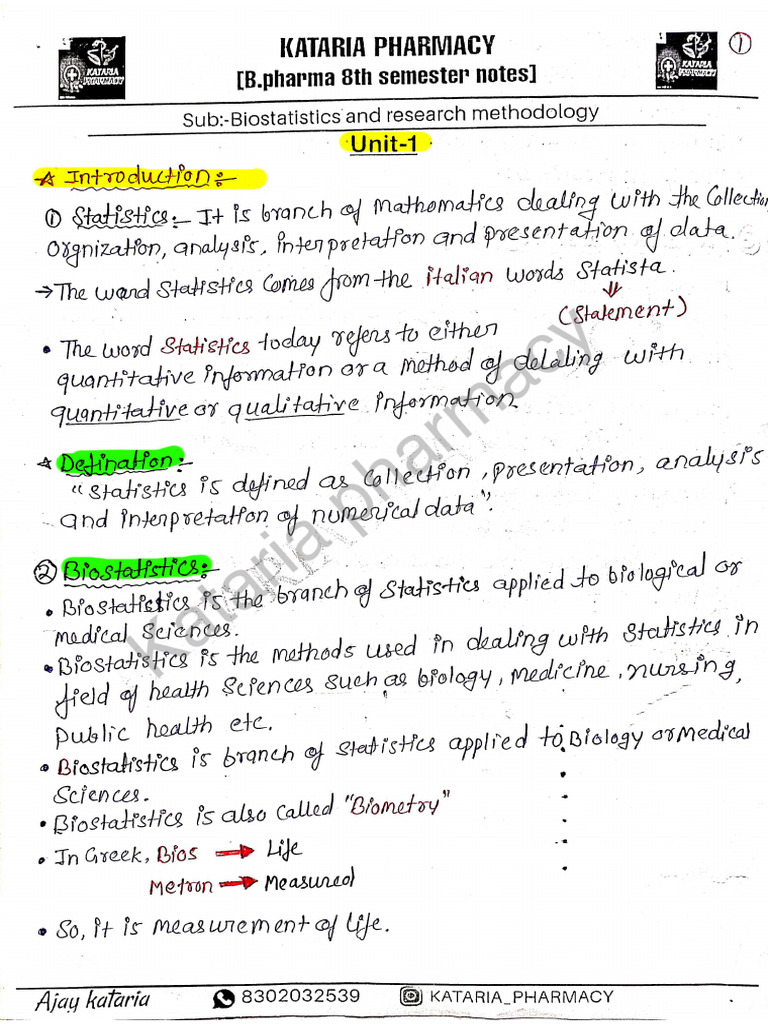 KATARIA PHARMACY
[B.pharma 8th semester notes]
KATARIA
PHARMACY
KATARIA
PHARMACY
1
Sub:-Biostatistics and research methodology
Unit-1
Introduction:-
① Statistics:- It is branch of Mathematics dealing with the Collection,
Orgnization, analysis, interpretation and presentation of data.
→ The word Statistics comes from the italian words Statista.
(Statement)
• The word Statistics today refers to either
quantitative information or a method of delaling with
quantitative or qualitative information.
Defination:-
"Statistics is defined as Collection, presentation, analysis
and interpretation of numerical data".
② Biostatistics:-
• Biostatistics is the branch of Statistics applied to biological or
medical Sciences.
• Biostatistics is the methods used in dealing with Statistics in
field of health Sciences such as biology, medicine, nursing,
public health etc.
• Biostatistics is branch of Statistics applied to Biology or Medical
Sciences.
• Biostatistics is also called "Biometry"
• In Greek, Bios → Life
Metron → Measured
• So, it is measurement of life.
Kataria pharmacy
Ajay kataria
8302032539
KATARIA_PHARMACY